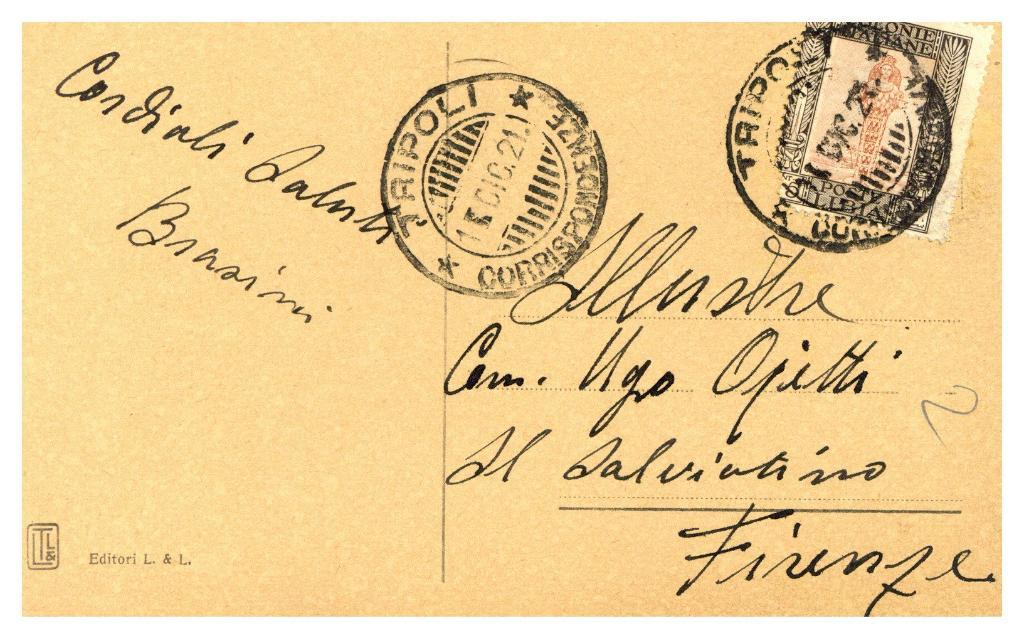 Cordiali Saluti
Brasini
TRIPOLI
1 5 DIC. 21. 1
CORRISPONDENZE
COLONIE
ITALIANE
LIBIA
TRIPOLI
DIC.
Illustre
Com. Ugo Ojetti
Il Salviatino
Firenze
LT&L
Editori L. & L.